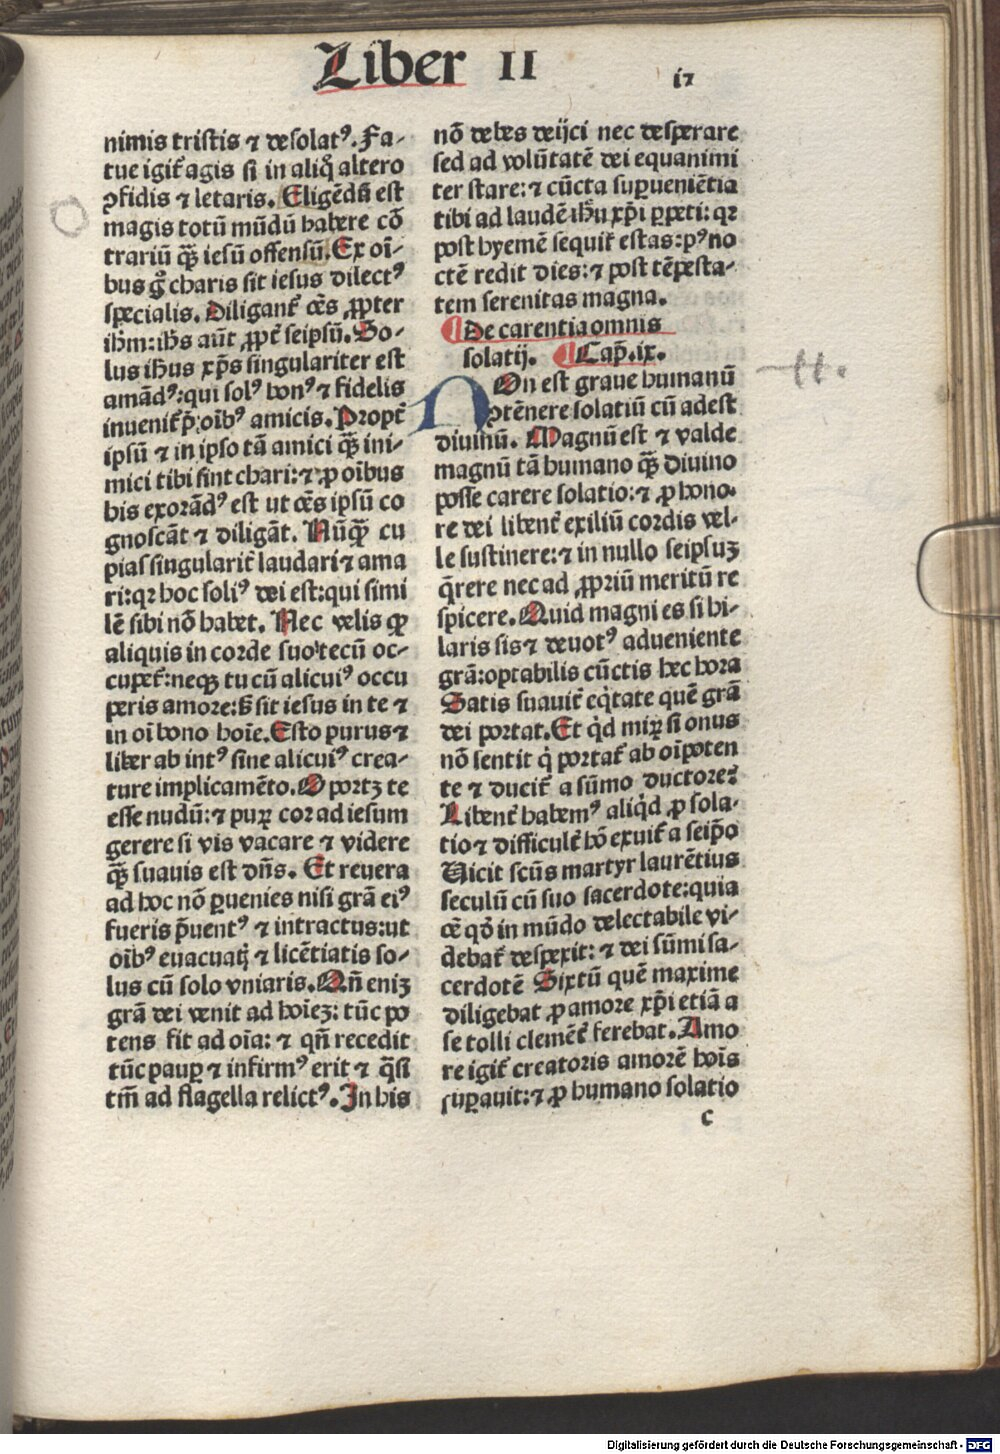 Liber II
ir
nimis tristis ⁊ desolatꝰ. Fa-
tue igit̄ agis si in aliq̊ altero
ꝓfidis ⁊ letaris. Eligēdū est
magis totū mūdū habere cō
trariū qꝫ̄ iesū offensū. Ex oī-
bus gͦ charis sit iesus dilectꝰ
specialis. Diligant̄ oēs ꝓpter
ihm: ihs aūt ꝓpt̄ seipsū. So-
lus ihus xp̄s singulariter est
amādꝰ: qui solꝰ bonꝰ ⁊ fidelis
inuenit̄ p̄ oībꝰ amicis. Propt̄
ipsū ⁊ in ipso tā amici qꝫ̄ ini-
mici tibi sint chari: ⁊ ꝓ oībus
his exorādꝰ est ut oēs ipsū co
gnoscāt ⁊ diligāt. Nūqꝫ̄ cu
pias singularit̄ laudari ⁊ ama
ri: qꝛ hoc soliꝰ dei est: qui simi
lē sibi nō habet. Nec velis ꝙ
aliquis in corde suo tecū oc-
cupet̄: neqꝫ tu cū alicuiꝰ occu
peris amore: sꝫ sit iesus in te ⁊
in oī bono hoīe. Esto purus ⁊
liber ab intꝰ sine alicuiꝰ crea-
ture implicamēto. Oportꝫ te
esse nudū: ⁊ puꝝ cor ad iesum
gerere si vis vacare ⁊ videre
qꝫ̄ suauis est dn̄s. Et reuera
ad hoc nō ꝑuenies nisi grā eiꝰ
fueris p̄uentꝰ ⁊ intractus: ut
oībꝰ euacuatꝭ ⁊ licētiatis so-
lus cū solo vniaris. Qn̄ enīꝫ
grā dei venit ad hoīeꝫ: tūc po
tens fit ad oīa: ⁊ qn̄ recedit
tūc paupꝝ ⁊ infirmꝰ erit ⁊ q̄si
tm̄ ad flagella relictꝰ. In his
nō debes deijci nec desperare
sed ad volūtatē dei equanimi
ter stare: ⁊ cūcta suꝑueniētia
tibi ad laudē ihu xp̄i ꝑpeti: qꝛ
post hyemē sequit̄ estas: pꝰ no
ctē redit dies: ⁊ post tēpesta-
tem serenitas magna.
De carentia omnis
solatij. Cap̄. ix.
NOn est graue humanū
ꝯtēnere solatiū cū adest
diuinū. Magnū est ⁊ valde
magnū tā humano qꝫ̄ diuino
posse carere solatio: ⁊ ꝓ hono-
re dei libent̄ exiliū cordis vel-
le sustinere: ⁊ in nullo seipsuꝫ
q̄rere nec ad ꝓpriū meritū re
spicere. Quid magni es si hi-
laris sis ⁊ deuotꝰ adueniente
grā: optabilis cūctis hec hora
Satis suauit̄ eq̇tate quē grā
dei portat. Et q̇d miꝝ si onus
nō sentit q̇ portat̄ ab oīpoten
te ⁊ ducit̄ a sūmo ductore?
Libent̄ habemꝰ aliq̇d ꝓ sola-
tio ⁊ difficult̄ hō exuit̄ a seip̄o
Uicit scūs martyr laurētius
seculū cū suo sacerdote: quia
oē qd̓ in mūdo delectabile vi-
debat̄ despexit: ⁊ dei sūmi sa-
cerdotē Sixtū quē maxime
diligebat ꝓ amore xp̄i etiā a
se tolli clemēt̄ ferebat. Amo
re igit̄ creatoris amorē hoīs
suꝑauit: ⁊ ꝓ humano solatio
c
Digitalisierung gefördert durch die Deutsche Forschungsgemeinschaft - DFG